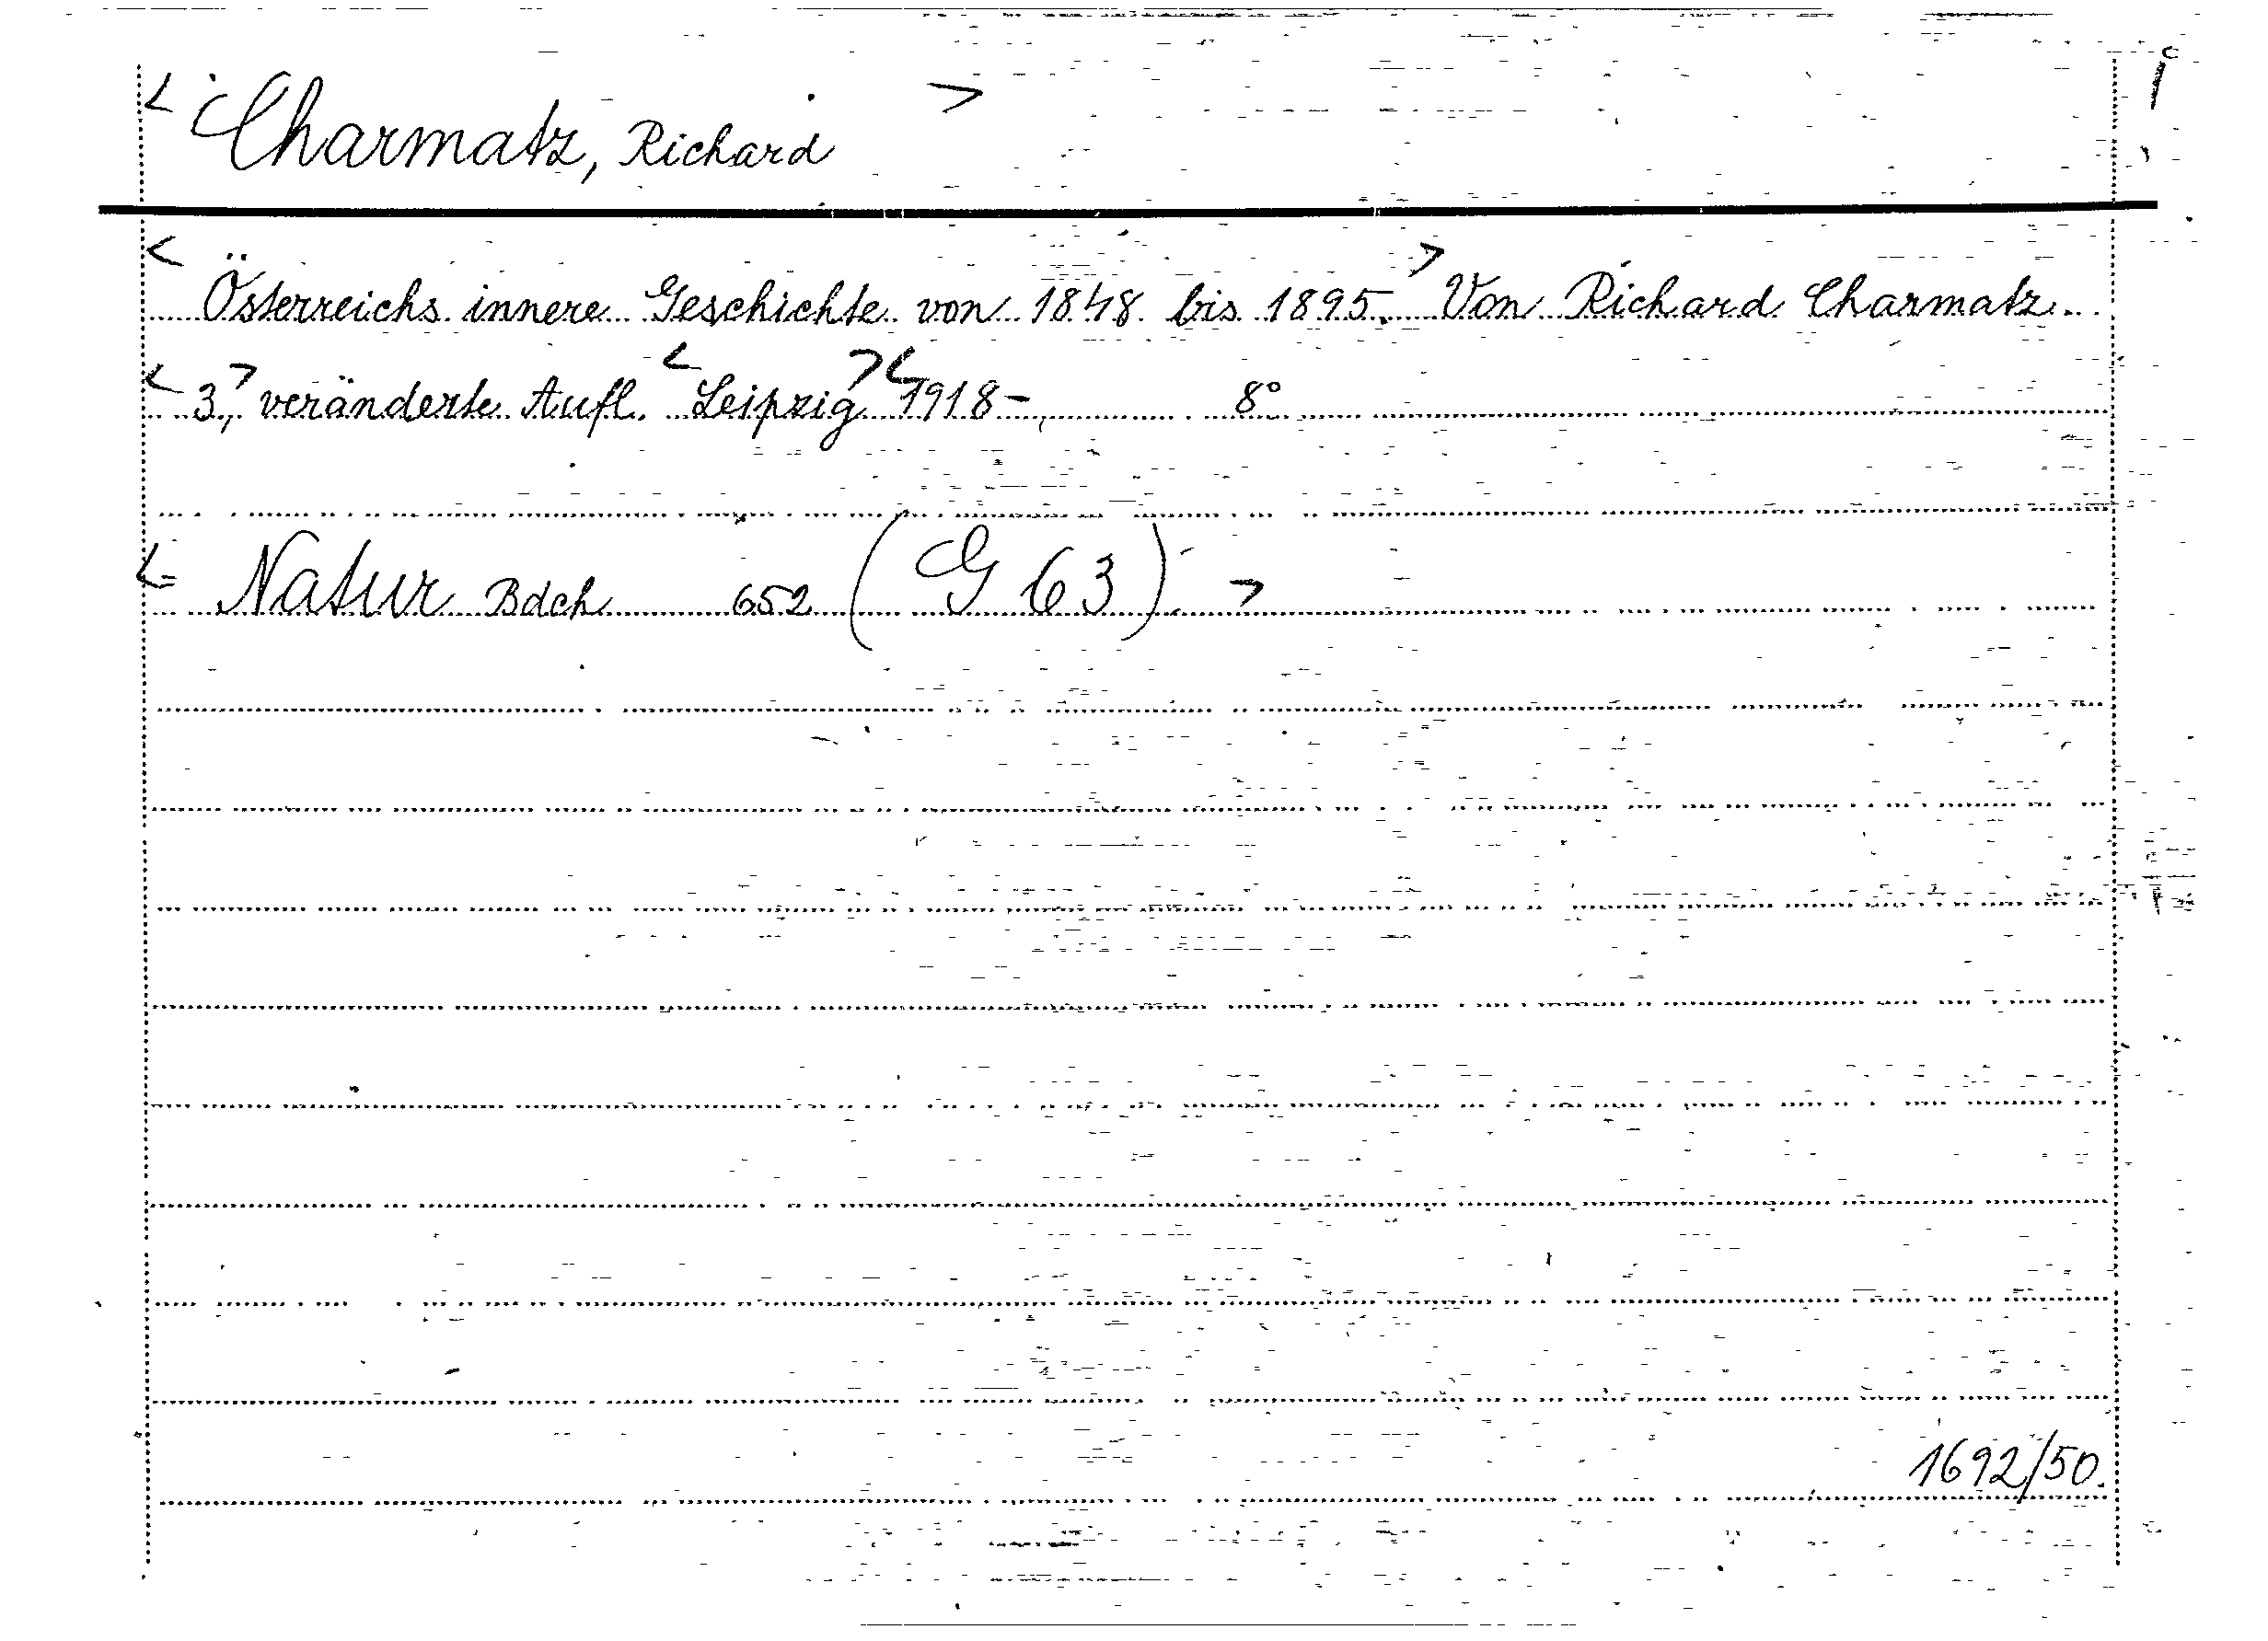 < Charmatz, Richard >
< Österreichs innere Geschichte von 1848 bis 1895. > Von Richard Charmatz.
< 3., > veränderte Aufl. < Leipzig > < 1918- 8°
< Natur Bdch 652 (G 63) >
1692/50.